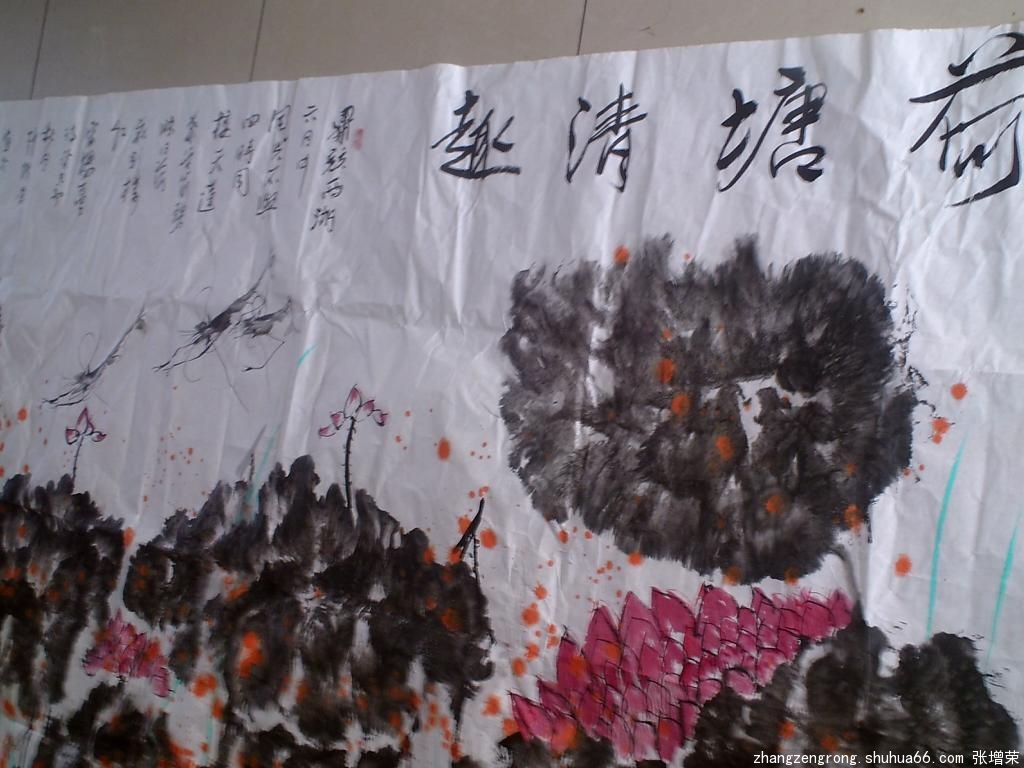 荷塘清趣
畢竟西湖
六月中
風光不與
四時同
接天蓮
葉無窮碧
映日荷
花別樣
紅
zhangzengrong.shuhua66.com 张增荣